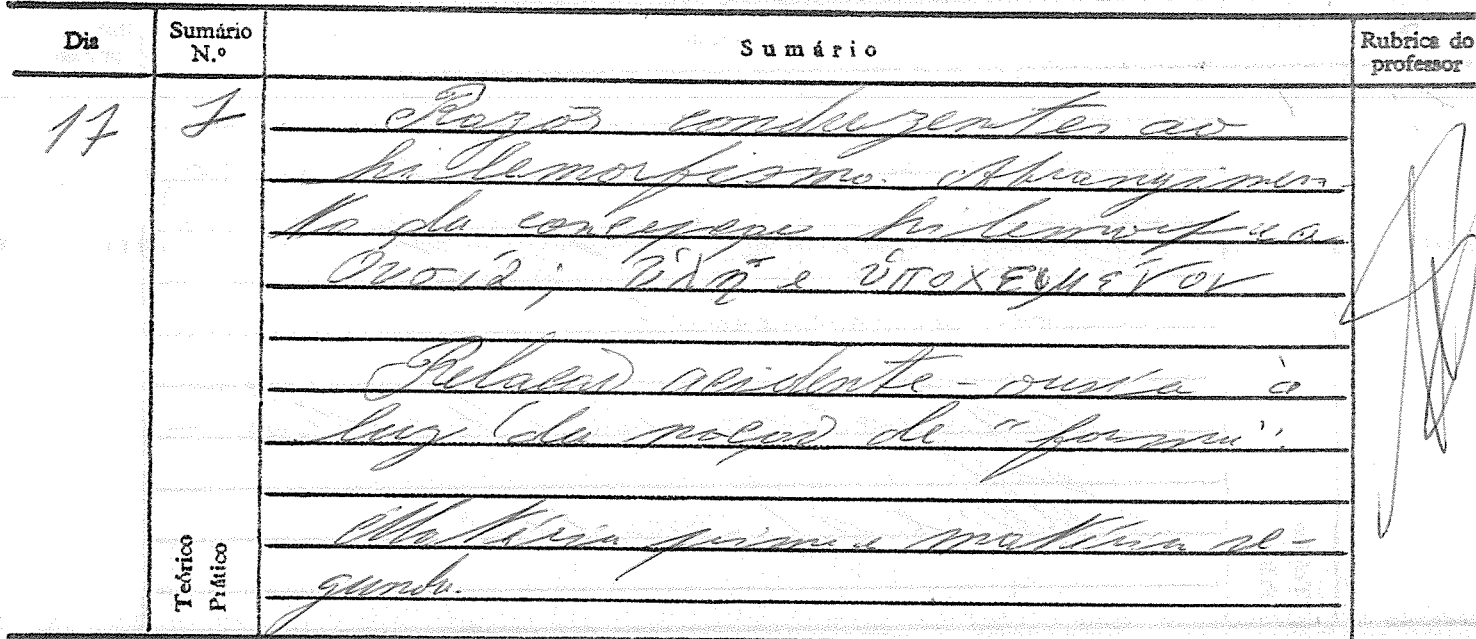 Dia
Sumário
N.º
Sumário
Rubrica do
professor
17
7
Razões conduzentes ao
hilemorfismo. Abrangimen-
to da concepção hilemorfica
Ουσία; ύλη e ύποχειμένον
Relação acidente-ousia à
luz da noção de "forma".
Matéria prima e matéria se-
gunda.
Teórico
Prático